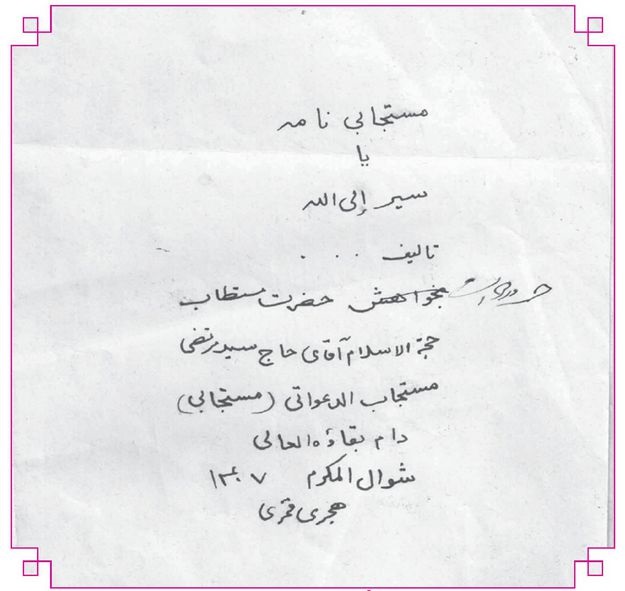 مستجابی نامه
یا
سیر إلی الله
تالیف . . .
بخواهش حضرت مستطاب
حجة الاسلام آقای حاج سید مرتضی
مستجاب الدعواتی (مستجابی)
دام بقاؤه العالی
شوال المکرم ۱۴۰۷
هجری قمری